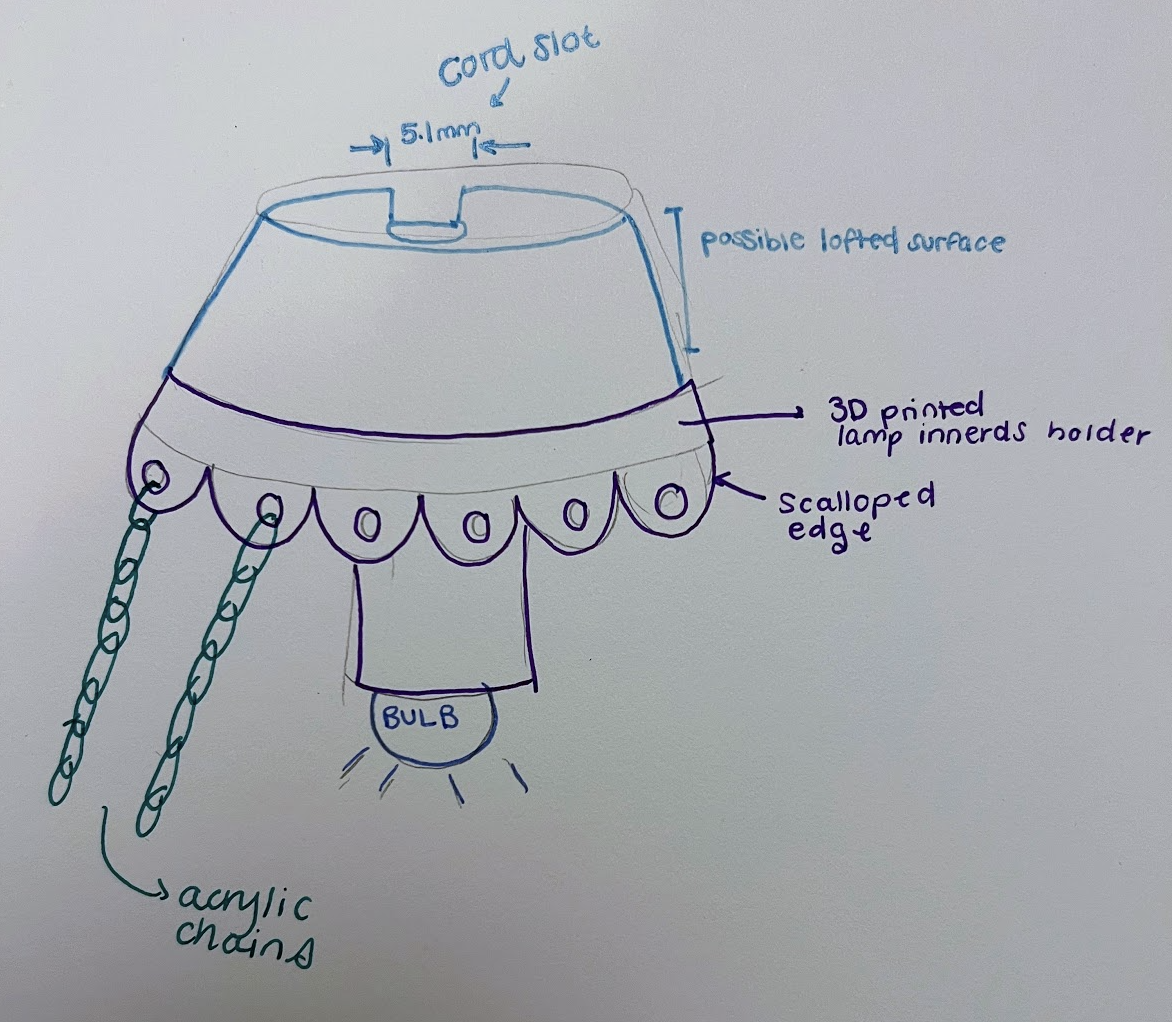 cord slot
5.1mm
possible lofted surface
3D printed
lamp innerds holder
scalloped
edge
BULB
acrylic
chains